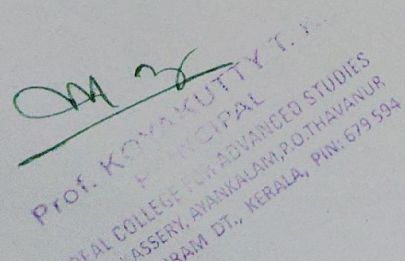 Prof. KOYAKUTTY T.
PRINCIPAL
COLLEGE FOR ADVANCED STUDIES
AYANKALAM, P.O. THAVANUR
DT., KERALA, PIN: 679 594